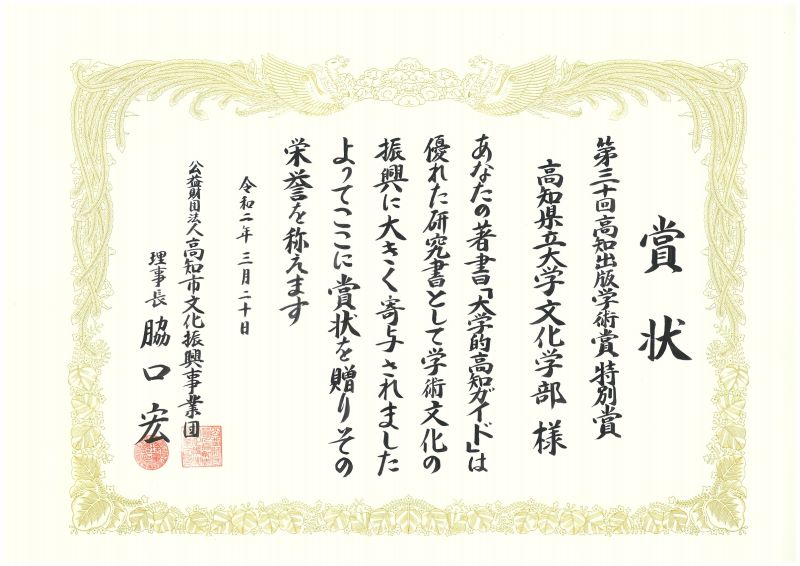 賞状
第三十回高知出版学術賞特別賞
高知県立大学文化学部 様
あなたの著書「大学的高知ガイド」は
優れた研究書として学術文化の
振興に大きく寄与されました
よってここに賞状を贈りその
栄誉を称えます
令和二年三月二十日
公益財団法人高知市文化振興事業団
理事長 脇口宏